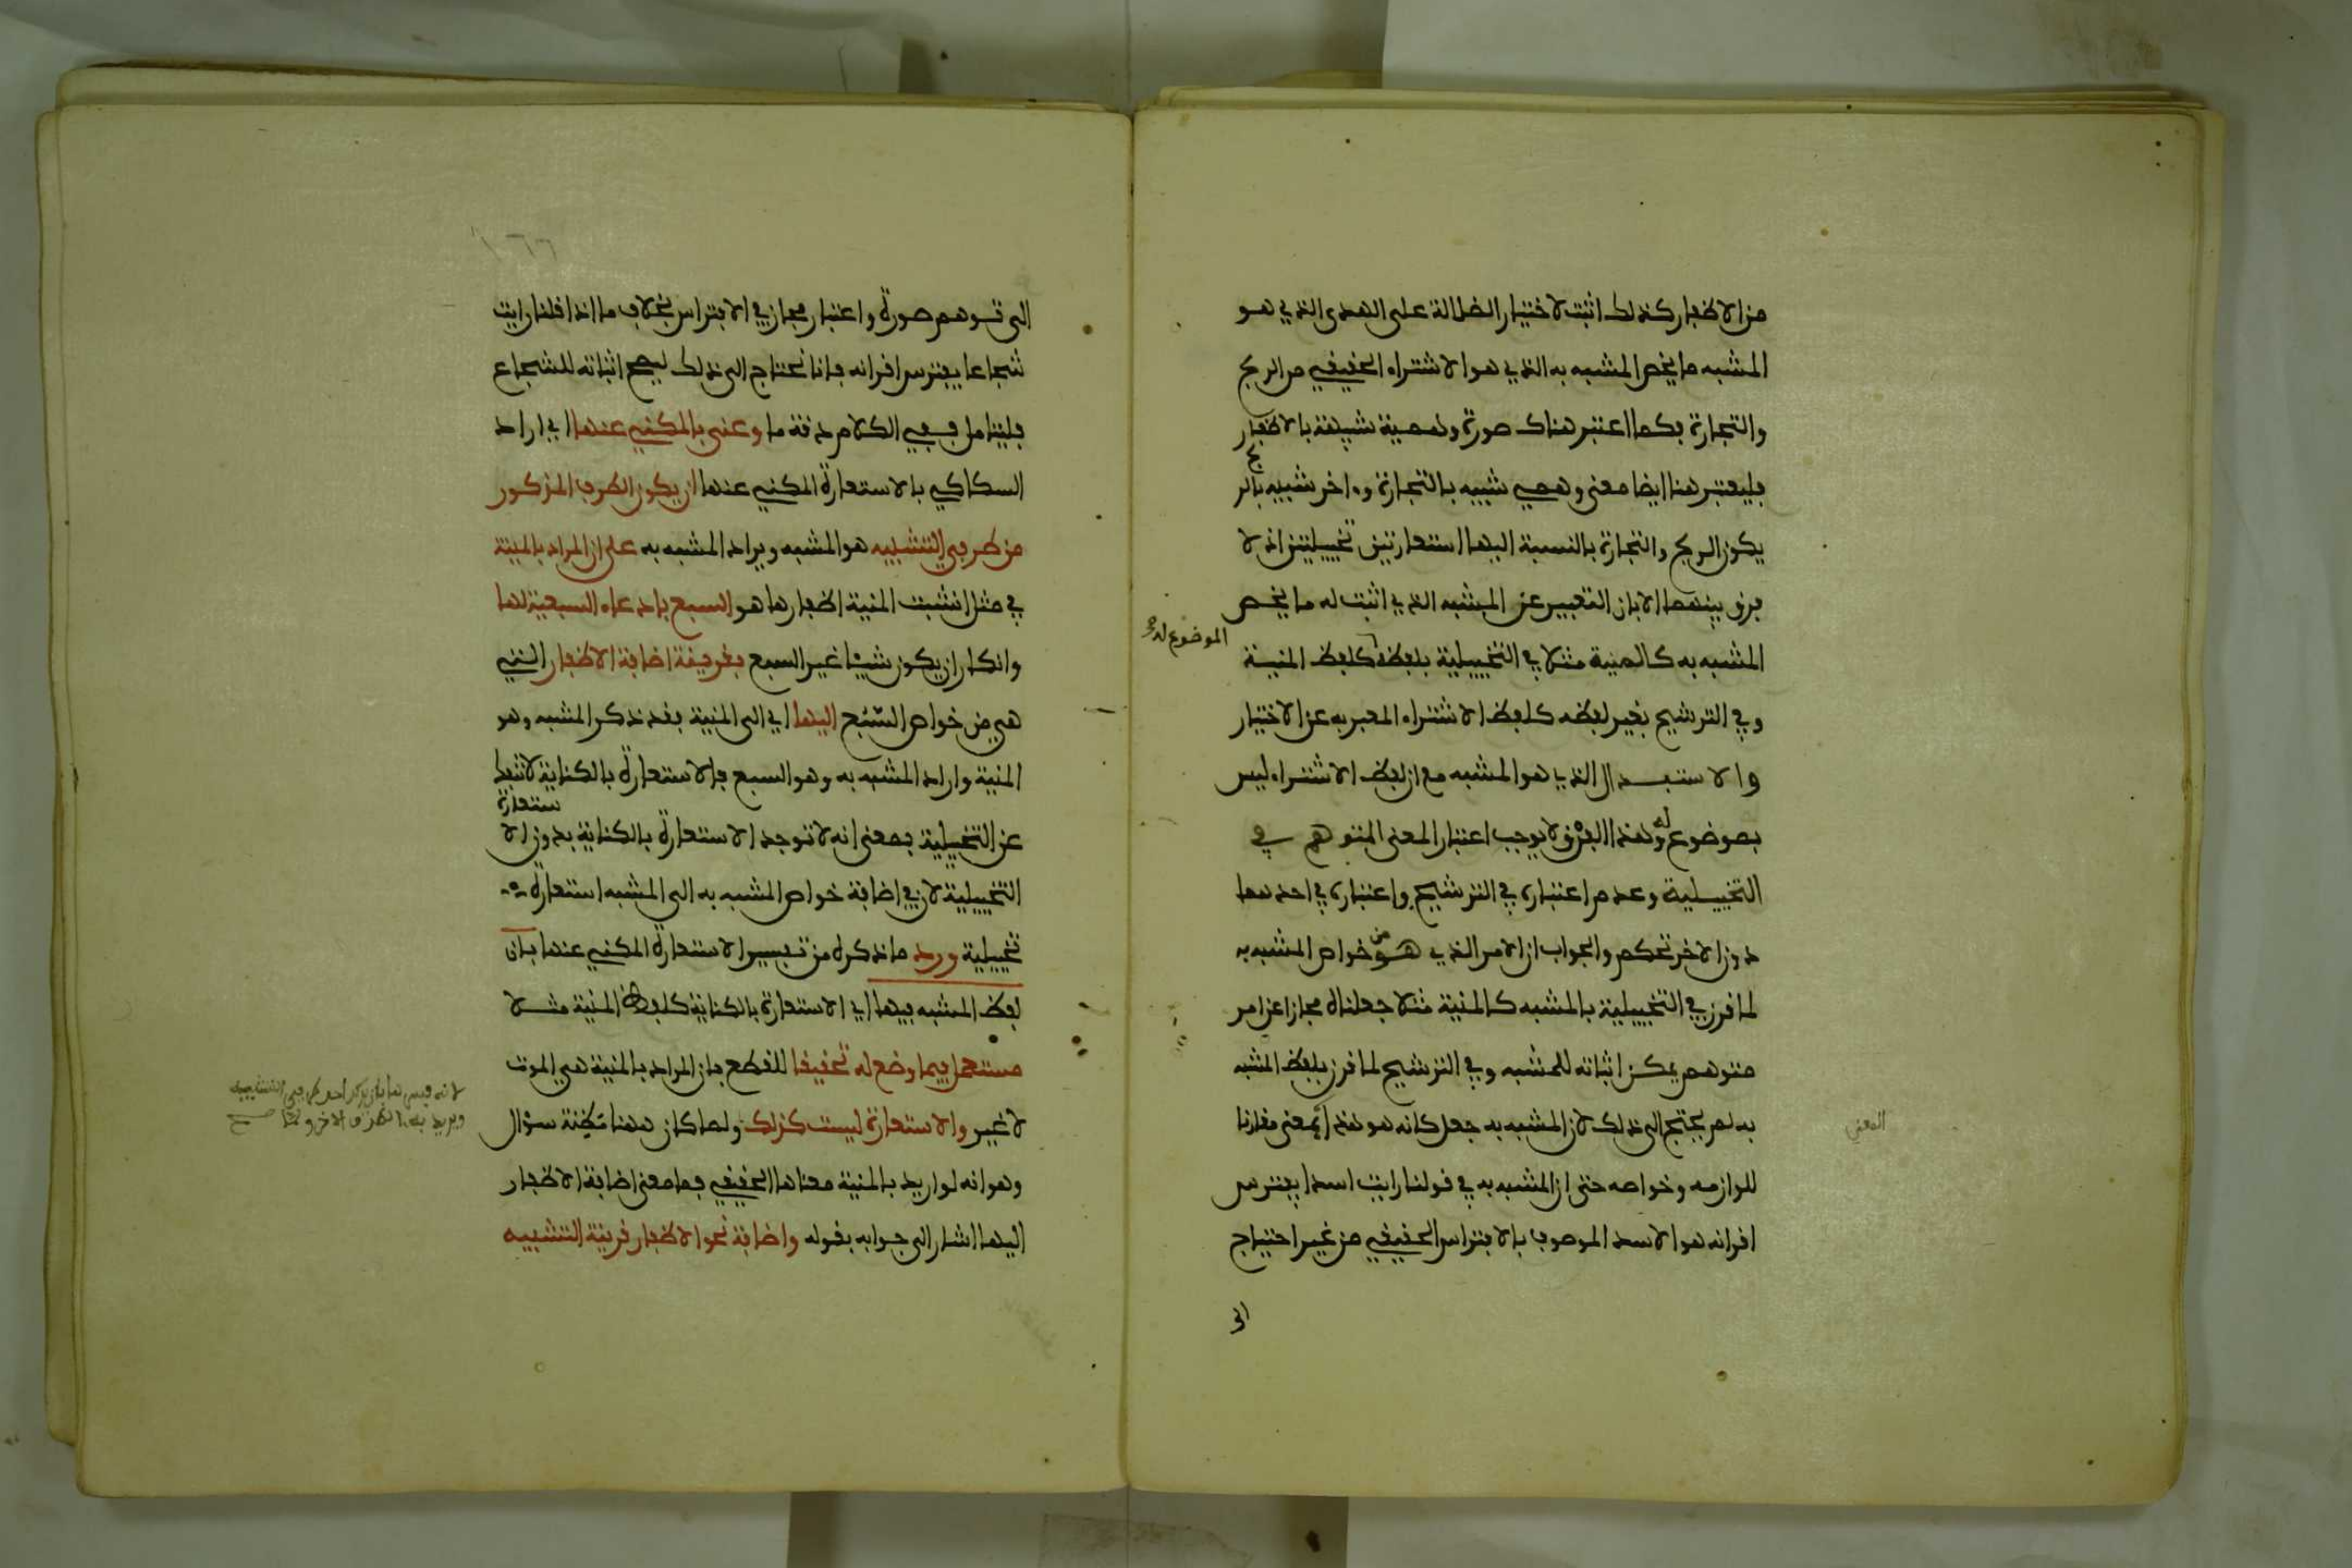 من الاظفار كذلك اثبت لاختيار الضلالة على الهدى الذي هو
المشبه ما يخص المشبه به الذي هو الاشتراء الحقيقي من الربح
والتجارة فكما اعتبر هناك صورة وهمية شبيهة بالاظفار
فليعتبر هنا ايضا معنى وهمي شبيه بالتجارة وءاخر شبيه بالربح
يكون الربح والتجارة بالنسبة اليهما استعارتين تخييليتين اذ لا
فرق بينهما الا بان التعبير عن المشبه الذي اثبت له ما يخص
المشبه به كالمنية مثلا في التخييلية بلفظه كلفظ المنية
الموضوع له صح
وفي الترشيح بغير لفظه كلفظ الاشتراء المعبر به عن الاختيار
والاستبدال الذي هو المشبه مع ان لفظ الاشتراء ليس
بموضوع له وهذا الفرق لا يوجب اعتبار المعنى المتوهم في
التخييلية وعدم اعتباره في الترشيح واعتباره في احدهما
دون الاخر تحكم والجواب ان الامر الذي هو من خواص المشبه به
لما قرن في التخييلية بالمشبه كالمنية مثلا جعلناه مجازا عن امر
متوهم يمكن اثباته للمشبه وفي الترشيح لما قرن بلفظ المشبه
به لم يحتج الى ذلك لان المشبه به جعل كانه هو هذا المعنى مقارنا
المعنى
للوازمه وخواصه حتى ان المشبه به في قولنا رايت اسدا يفترس
اقرانه هو الاسد الموصوف بالافتراس الحقيقي من غير احتياج
الى
١٦٦
الى توهم صورة واعتبار مجاز في الافتراس بخلاف ما اذا قلنا رايت
شجاعا يفترس اقرانه فانا نحتاج الى ذلك ليصح اثباته للشجاع
فليتامل ففي الكلام دقة ما وعنى بالمكني عنها اي اراد
السكاكي بالاستعارة المكني عنها ان يكون الطرف المذكور
من طرفي التشبيه هو المشبه ويراد المشبه به على ان المراد بالمنية
في مثل انشبت المنية اظفارها هو السبع بادعاء السبعية لها
وانكار ان يكون شيئا غير السبع بقرينة اضافة الاظفار التي
هي من خواص السبع اليها اي الى المنية فقد ذكر المشبه وهو
المنية واراد المشبه به وهو السبع فالاستعارة بالكناية لا تنفك
عن التخييلية بمعنى انه لا توجد الاستعارة بالكناية بدون الاستعارة
التخييلية لان في اضافة خواص المشبه به الى المشبه استعارة
تخييلية ورد ما ذكره من تفسير الاستعارة المكني عنها بان
لفظ المشبه فيها اي الاستعارة بالكناية كلفظ المنية مثلا
مستعمل فيما وضع له تحقيقا للقطع بان المراد بالمنية هي الموت
لا غير والاستعارة ليست كذلك ولما كان ههنا مظنة سؤال
لانه فسرها بان يذكر احد طرفي التشبيه
ويريد به الطرف الاخر صح
وهو انه لو اريد بالمنية معناها الحقيقي فما معنى اضافة الاظفار
اليها اشار الى جوابه بقوله واضافة نحو الاظفار قرينة التشبيه